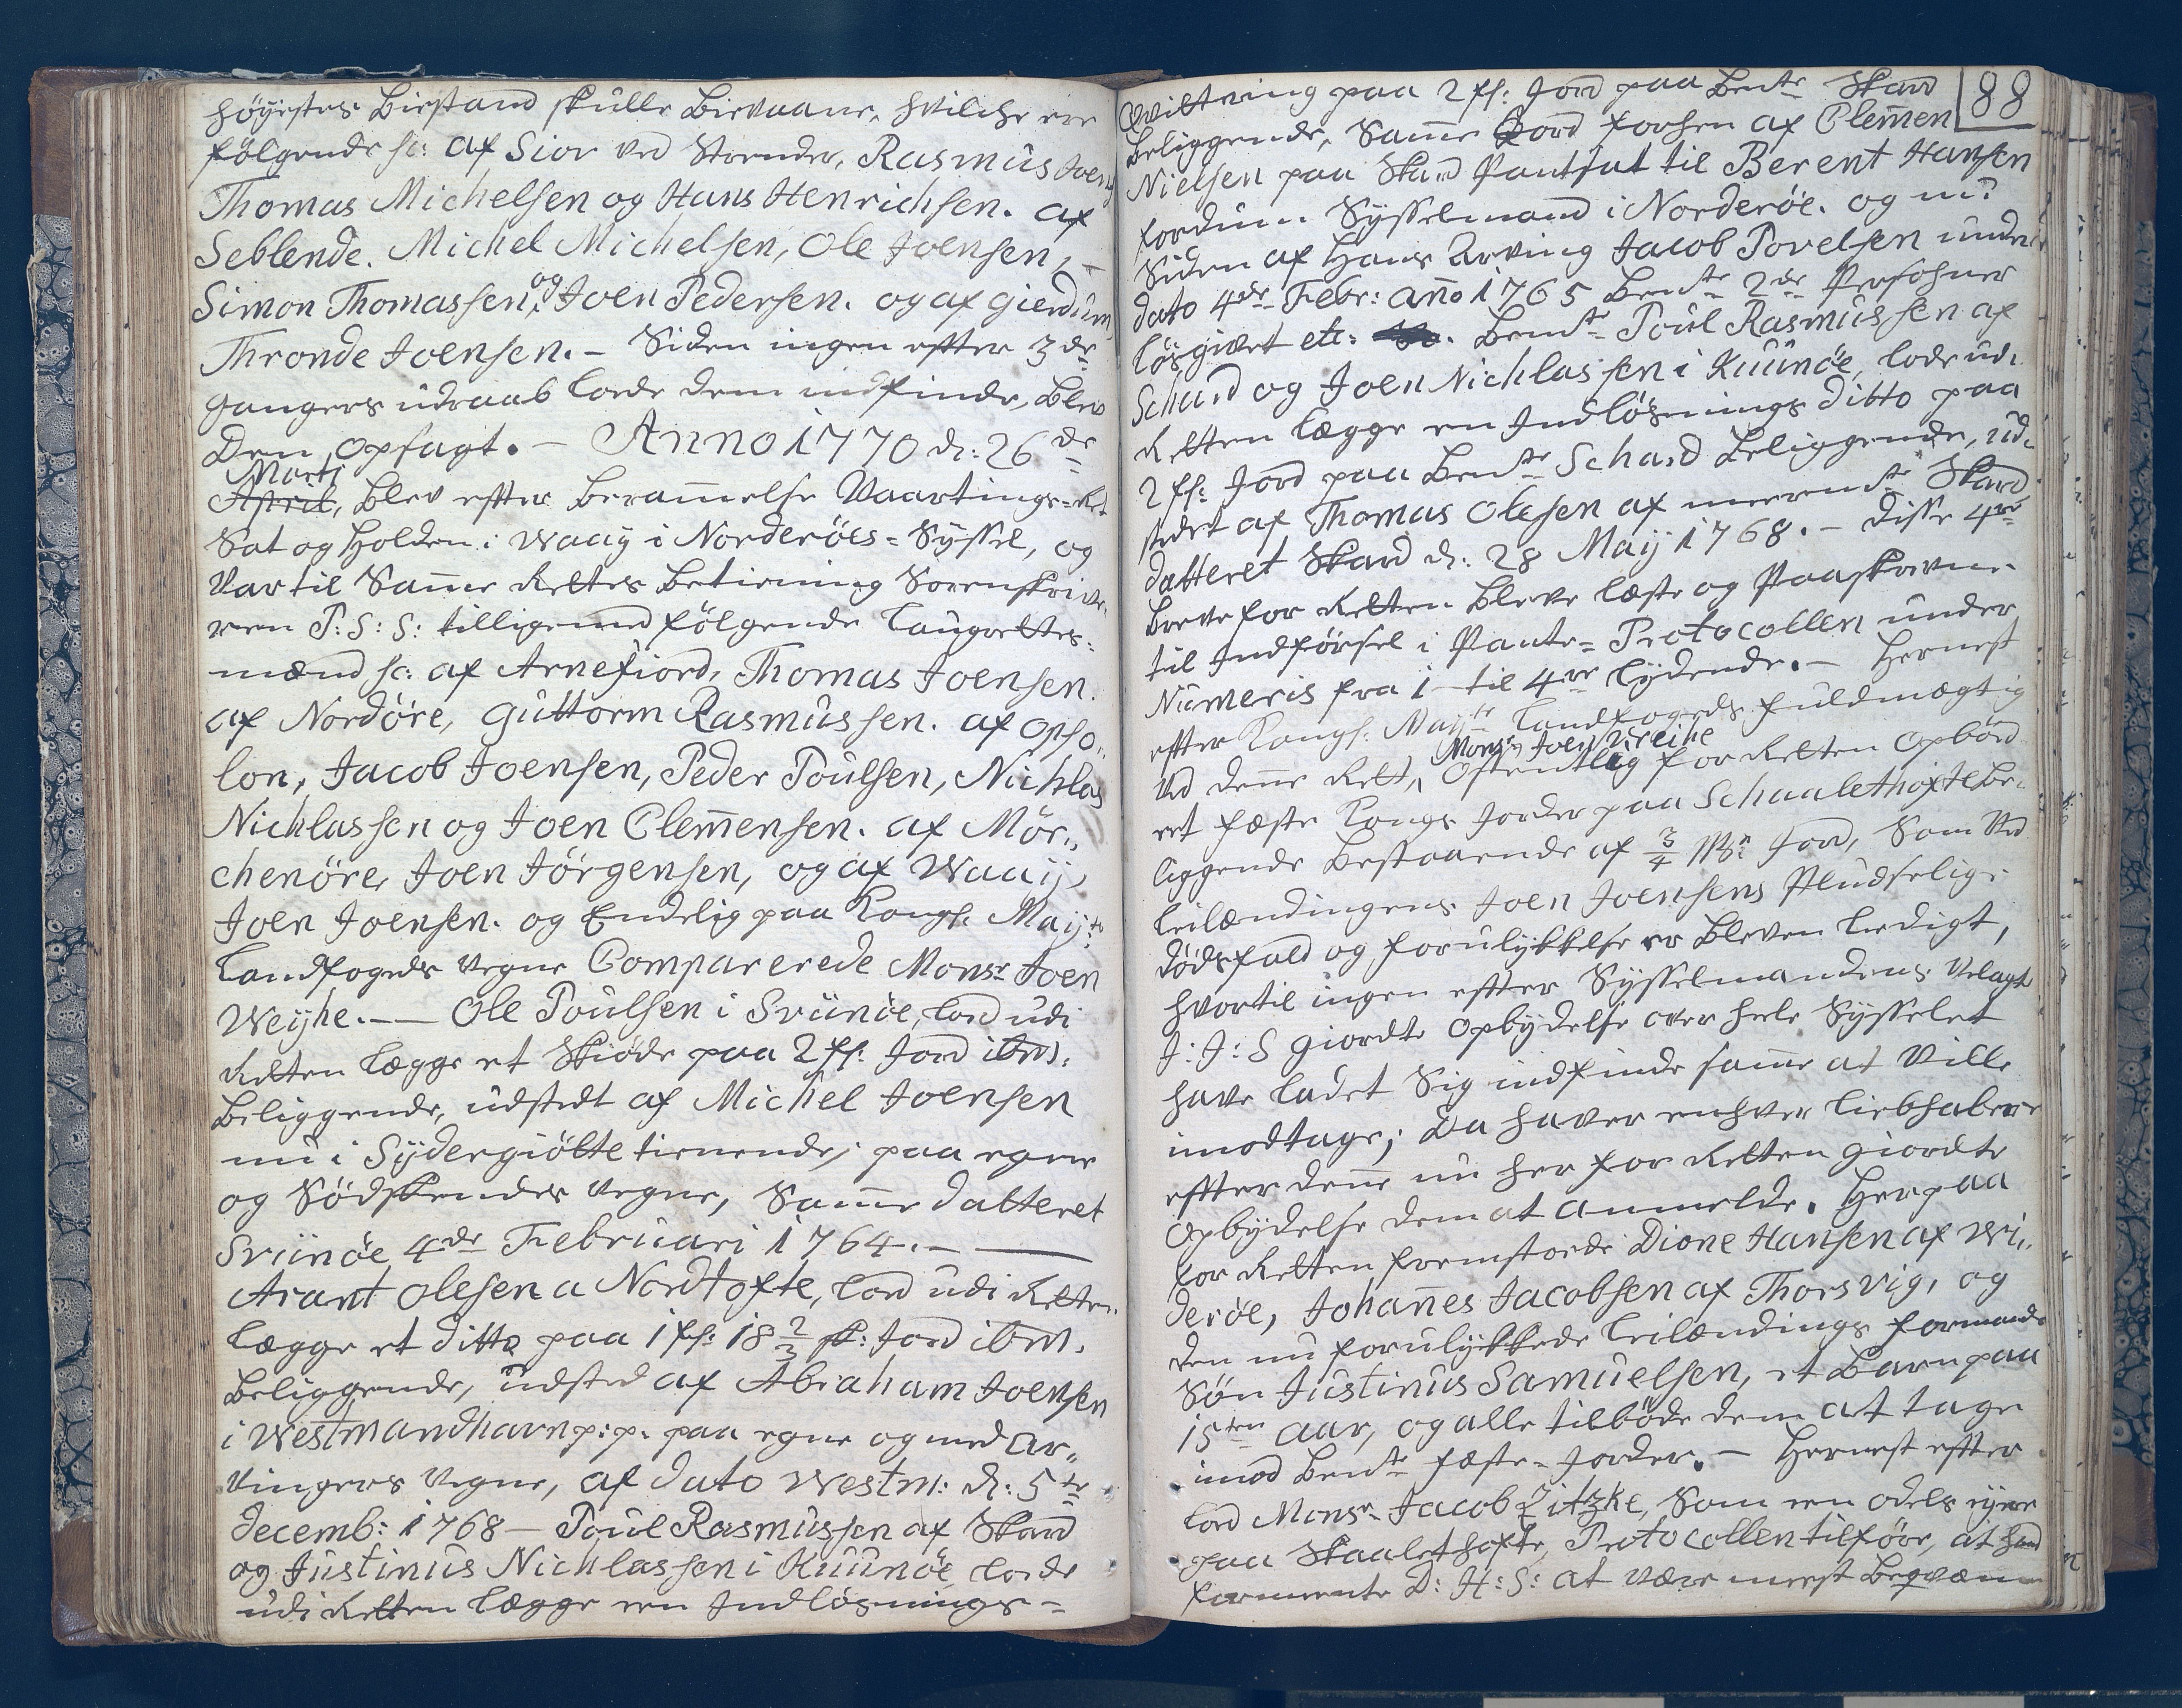 höyestes Biestand skulle Bievaane, hvilche ere
følgende sc: af Sior ved Strender, Rasmus Joens
Thomas Michelsen og Hans Henrichsen. af
Seblende. Michel Michelsen, Ole Joensen, -
Simon Thomassen, og Joen Pedersen. og af Gierdum,
Thronde Joensen. - Siden ingen efter 3de
gangers udraab lode dem indfinde, Blev
Den opsagt. - Anno 1770 d: 26de
Marti
April, Blev efter Berammelse Vaartings-Ret
Sat og Holden i Waaÿ i Norderöes-Syssel, og
Var til Samme Rettes Betiening Sorenskrive-
ren P: S: S: tilligemed følgende Laugrettes-
mænd sc: af Arnefiord, Thomas Joensen.
af Nordöre, Guttorm Rasmussen. af Opso-
lon, Jacob Joensen, Peder Poulsen, Nichlas
Nichlassen og Joen Clemensen. af Mör-
chenöre, Joen Jörgensen, og af Waaÿ,
Joen Joensen. og Endelig paa Kongl. Mayts
Landfogeds Vegne Comparerede Monsr Joen
Weÿhe. — Ole Poulsen i Sviinöe, lod udi
Retten lægge et Skiöde paa 2 fs: Jord ibm.
Beliggende, udstedt af Michel Joensen
nu i Sÿdergiötte tienende, paa egne
og Södskendes Vegne, Samme datteret
Sviinöe 4de Februari 1764. —
Arant Olesen a Nordtofte, lod udi Retten
lægge et ditto paa 1 fs: 18 2/3 sk: Jord ibm.
Beliggende, udsted af Abraham Joensen
i Westmandhavn p: p. paa egne og med Ar-
vingers Vegne, af dato Westm: d: 5te
decemb: 1768 — Poul Rasmussen af Skard
og Justinus Nichlassen i Kuunöe, lode
udi Retten lægge een Indlösnings-
88
Qvittering paa 2 fs: Jord paa Bemte Skard
Beliggende, Samme Jord forhen af Clemen
Nielsen paa Skard Pantsat til Berent Hansen
fordum Sysselmand i Norderöe. og nu
Siden af Hans Arving Jacob Povelsen under
dato 4de Febr: anno 1765 Bemte 2de Persohner
lösgivet etc: Bemte Poul Rasmussen af
Schard og Joen Nichlassen i Kuunöe, lode udi
Retten lægge en Indlösnings ditto paa
2 fs: Jord paa Bemte Schard Beliggende, ud-
stedet af Thomas Olesen af meerbemte Skard
datteret Skard d: 28 Maij 1768. - Disse 4re
Breve for Retten Bleve læste og Paaskrevne
til Indförsel i Pante-Protocollen under
Numeris fra 1 til 4re lydende. - Hernest
efter Kongl. Mayts Landfogeds fuldmægtig
Monsr Joen Weihe
ved denne Rett, Offentlig for Retten Opböd
et fæste Kongs Jorder paa Schaalethofte be-
liggende Bestaaende af 3/4 Mk Jord, Som Ved
Leilændingens Joen Joensens Pludselige
dödsfald og forulykkelse er Bleven Ledigt,
hvortil ingen efter Sysselmandens Velagt
J: J: S giordte Opbydelse over hele Sysselet
have ladet Sig indfinde samme at Ville
imodtage; Da haver enhver Liebhabere
efter denne nu her for Retten giordte
Opbydelse dem at anmelde. Herpaa
for Retten fremstoede Dione Hansen af Wi-
deröe, Johannes Jacobsen af Thorsvig, og
den nu forulykkede Leilændings formands
Sön Justinus Samuelsen, et Barn paa
15ten aar, og alle tilböde dem at tage
imod Bemte fæste-Jorder. - Hernest efter
lod Monsr Jacob Zitzke, Som een odels eyere
paa Skaalethofte, Protocollen tilföre, at hand
formeente D: H: S: at være meest Beqvæm